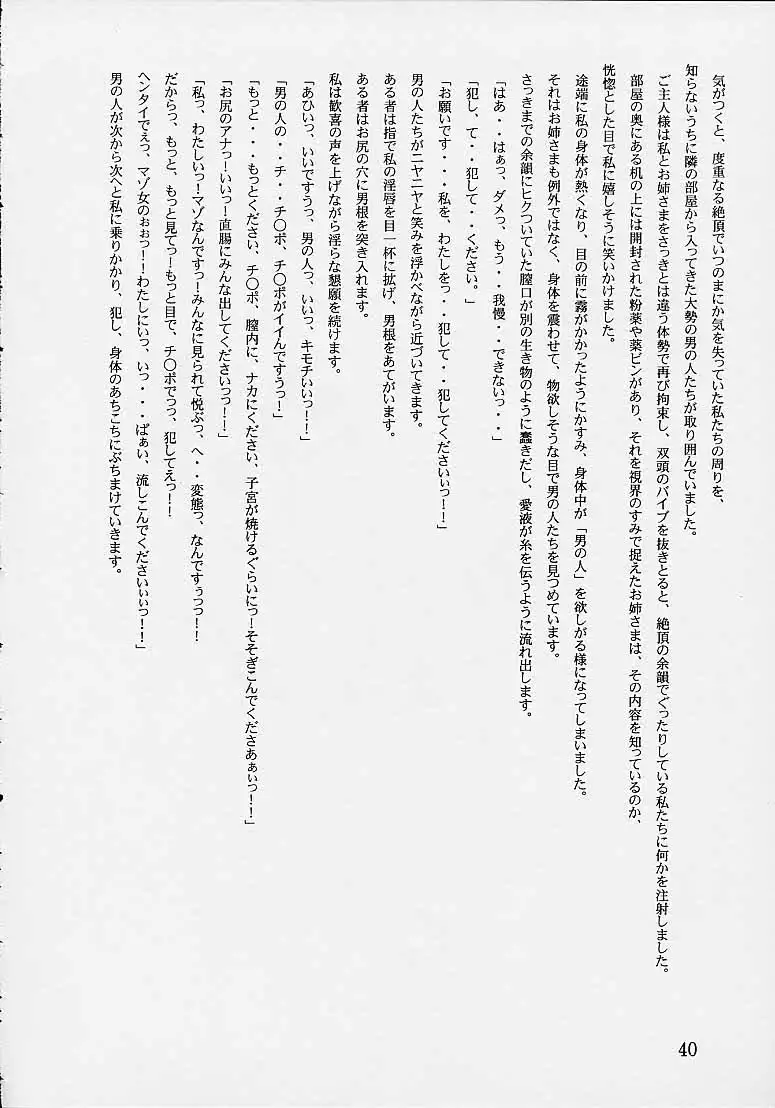 気がつくと、度重なる絶頂でいつのまにか気を失っていた私たちの周りを、
知らないうちに隣の部屋から入ってきた大勢の男の人たちが取り囲んでいました。
ご主人様は私とお姉さまをさっきとは違う体勢で再び拘束し、双頭のバイブを抜きとると、絶頂の余韻でぐったりしている私たちに何かを注射しました。
部屋の奥にある机の上には開封された粉薬や薬ビンがあり、それを視界のすみで捉えたお姉さまは、その内容を知っているのか、
恍惚とした目で私に嬉しそうに笑いかけました。
途端に私の身体が熱くなり、目の前に霧がかかったようにかすみ、身体中が「男の人」を欲しがる様になってしまいました。
それはお姉さまも例外ではなく、身体を震わせて、物欲しそうな目で男の人たちを見つめています。
さっきまでの余韻にヒクついていた膣口が別の生き物のように蠢きだし、愛液が糸を伝うように流れ出します。
「はあ・・はぁっ、ダメっ、もう・・我慢・・できないっ・・」
「犯し、て・・犯して・・ください。」
「お願いです・・・私を、わたしをっ・・犯して・・犯してくださいぃっ！！」
男の人たちがニヤニヤと笑みを浮かべながら近づいてきます。
ある者は指で私の淫唇を目一杯に拡げ、男根をあてがいます。
ある者はお尻の穴に男根を突き入れます。
私は歓喜の声を上げながら淫らな懇願を続けます。
「あひいっ、いいですうっ、男の人っ、いいっ、キモチいいっ！！」
「男の人の・・チ・・チ〇ポ、チ〇ポがイイんですうっ！」
「もっと・・・もっとください、チ〇ポ、膣内に、ナカにください、子宮が焼けるぐらいにっ！そそぎこんでくださあぁいっ！！」
「お尻のアナっーいいっ！直腸にみんな出してくださいっっ！！」
「私っ、わたしいっ！マゾなんですっ！みんなに見られて悦ぶっ、へ・・変態っ、なんですぅっっ！！
だからっ、もっと、もっと見てっ！もっと目で、チ〇ポでっっ、犯してえっ！！
ヘンタイでえっ、マゾ女のぉぉっ！！わたしにいっ、いっ・・・ぱぁい、流しこんでくださいぃぃっ！！」
男の人が次から次へと私に乗りかかり、犯し、身体のあちこちにぶちまけていきます。
40